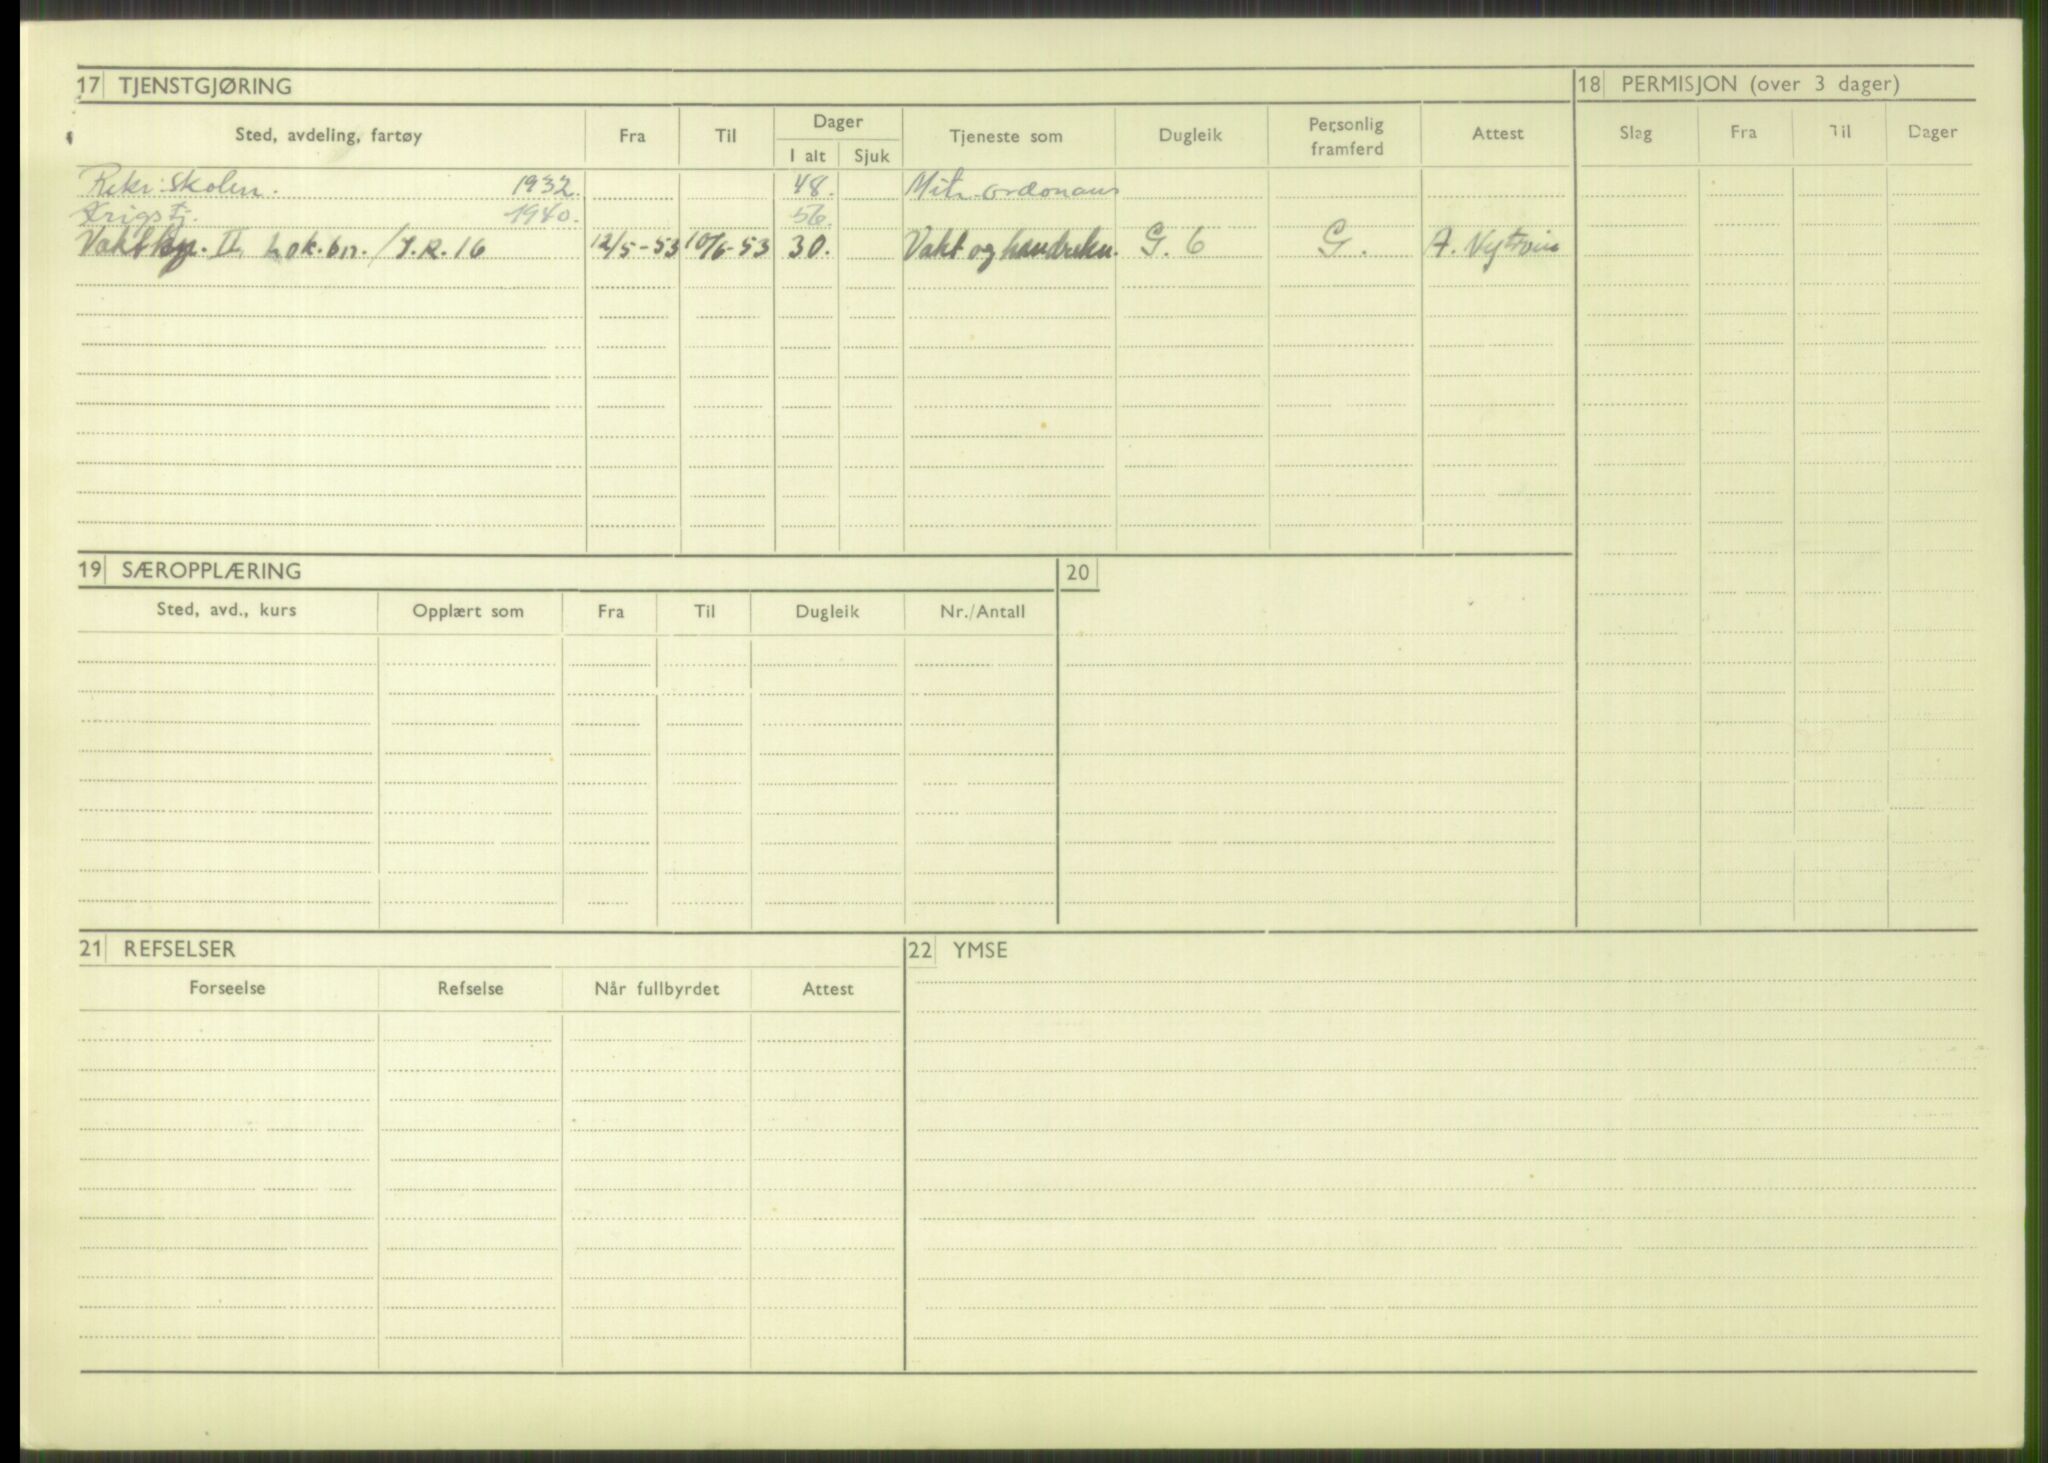 17 TJENSTGJØRING
18 PERMISJON (over 3 dager)
Sted, avdeling, fartøy Fra Til Dager Tjeneste som Dugleik Personlig framferd Attest
I alt Sjuk
Slag Fra Til Dager
Rekr.skolen. 1932. 48. Mitr. ordonans
Krigstj. 1940. 56.
Vaktkp. II lok.bn./I.R.16 12/5-53 10/6-53 30. Vakt og G. 6 G. A.
19 SÆROPPLÆRING
20
Sted, avd., kurs Opplært som Fra Til Dugleik Nr./Antall
21 REFSELSER
22 YMSE
Forseelse Refselse Når fullbyrdet Attest